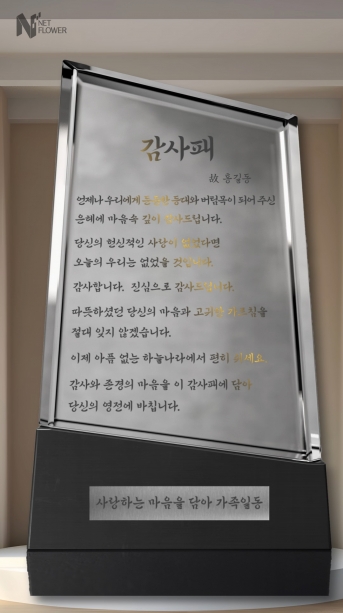 NET
FLOWER
감사패
故 홍길동
언제나 우리에게 든든한 등대와 버팀목이 되어 주신
은혜에 마음속 깊이 감사드립니다.
당신의 헌신적인 사랑이 없었다면
오늘의 우리는 없었을 것입니다.
감사합니다. 진심으로 감사드립니다.
따뜻하셨던 당신의 마음과 고귀한 가르침을
절대 잊지 않겠습니다.
이제 아픔 없는 하늘나라에서 편히 쉬세요.
감사와 존경의 마음을 이 감사패에 담아
당신의 영전에 바칩니다.
사랑하는 마음을 담아 가족일동